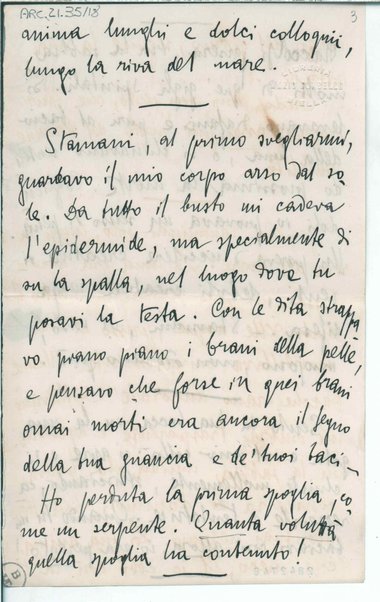 ARC.21.35/18
3
anima lunghi e dolci colloquii,
lungo la riva del mare.
Stamani, al primo svegliarmi,
guardavo il mio corpo arso dal so
le. Da tutto il busto mi cadeva
l'epidermide, ma specialmente di
su la spalla nel luogo dove tu
posavi la testa. Con le dita strappa
vo piano piano i brani della pelle,
e pensavo che forse in quei brani
omai morti era ancora il segno
della tua guancia e de' tuoi baci
Ho perduta la prima spoglia, co
me un serpente. Quanta voluttà
quella spoglia ha contenuto!